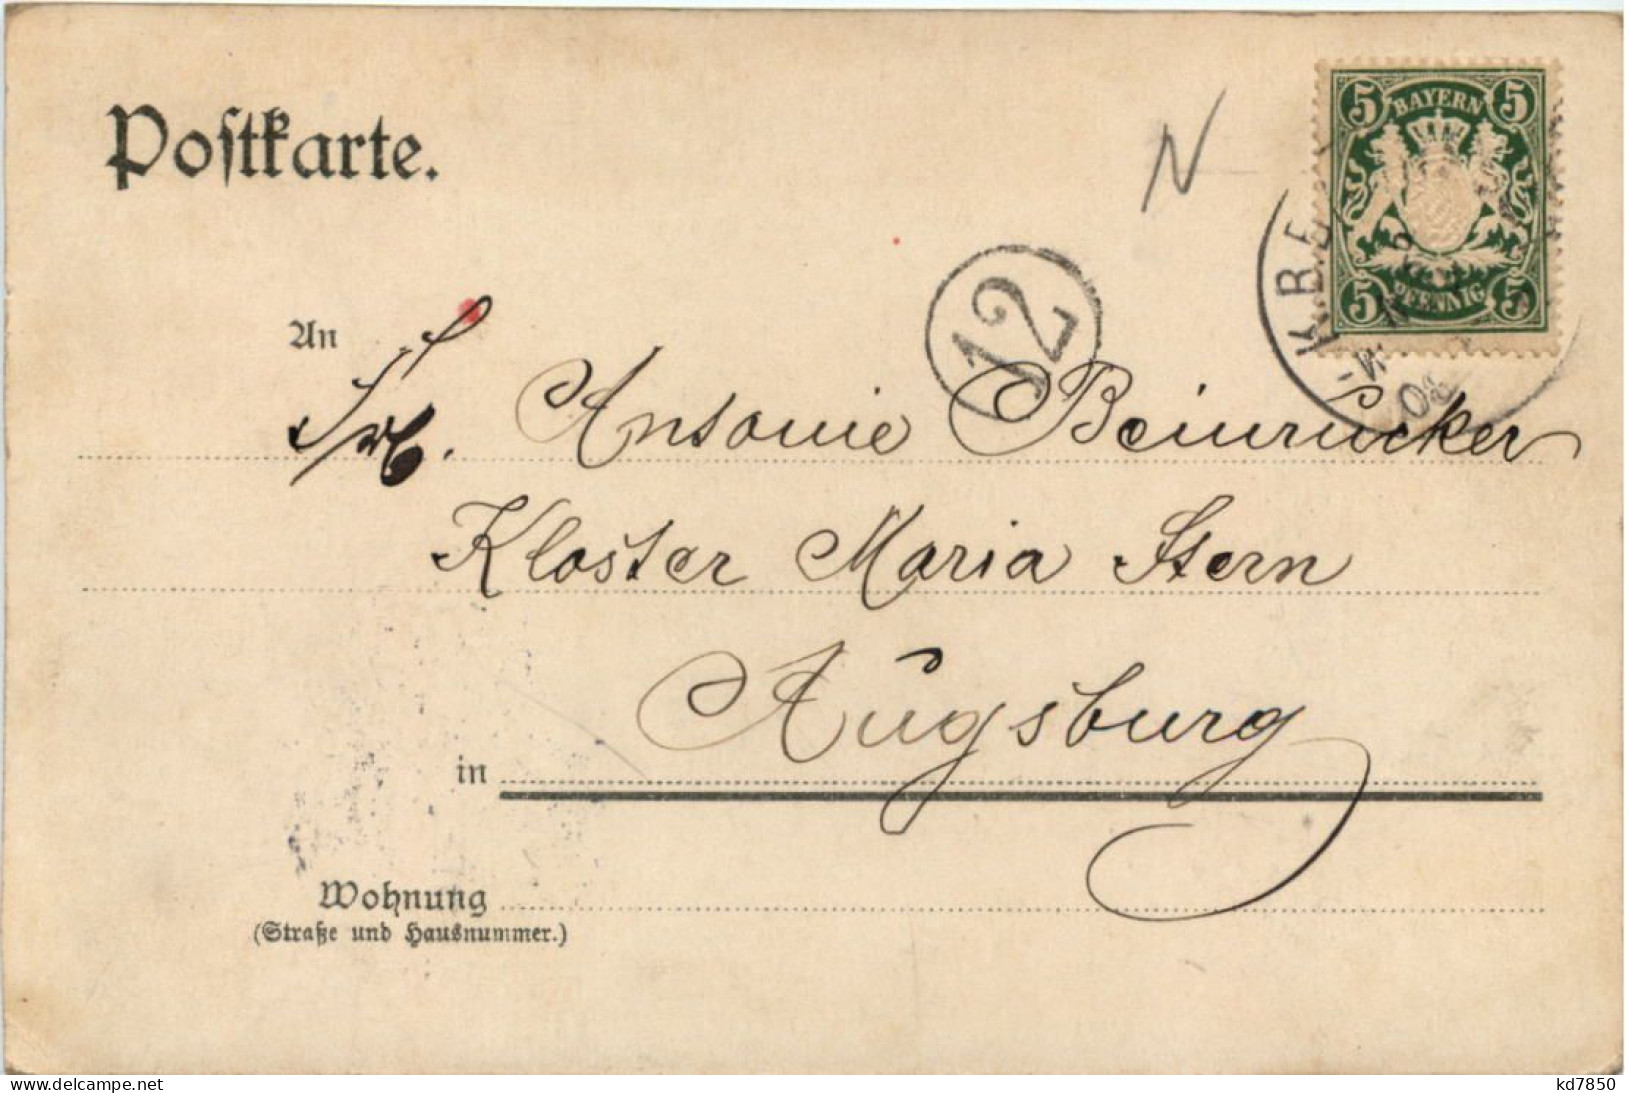 Postkarte.
N
5 BAYERN 5
5 PFENNIG 5
12
An
Frl. Antonie Beinrücker
Kloster Maria Stern
in Augsburg
Wohnung
(Straße und Hausnummer.)
www.delcampe.net
kd7850